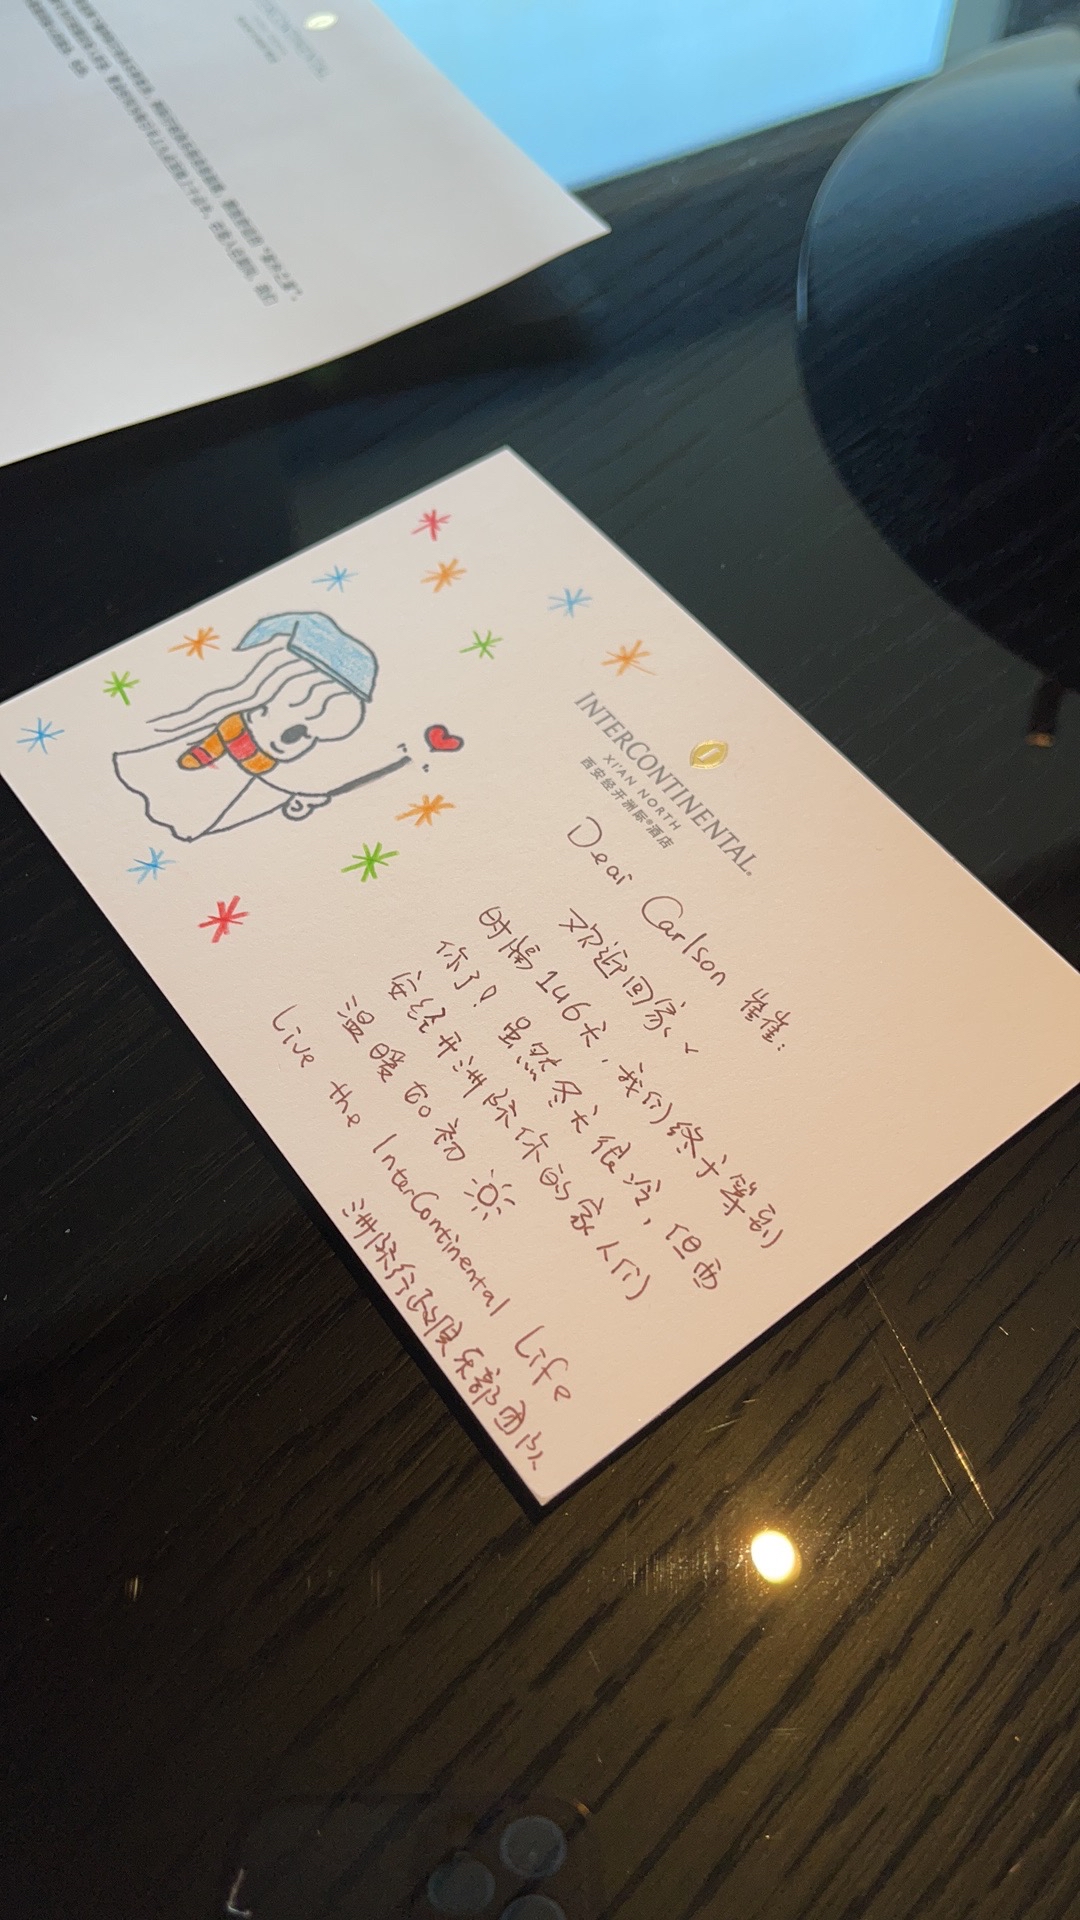 INTERCONTINENTAL
XI'AN NORTH
西安经开洲际酒店
Dear Carlson 崔崔:
欢迎回家~
时隔146天,我们终于等到
你了!虽然冬天很冷,但西
安经开洲际你的家人们
温暖如初
Live the InterContinental Life
洲际行政俱乐部团队